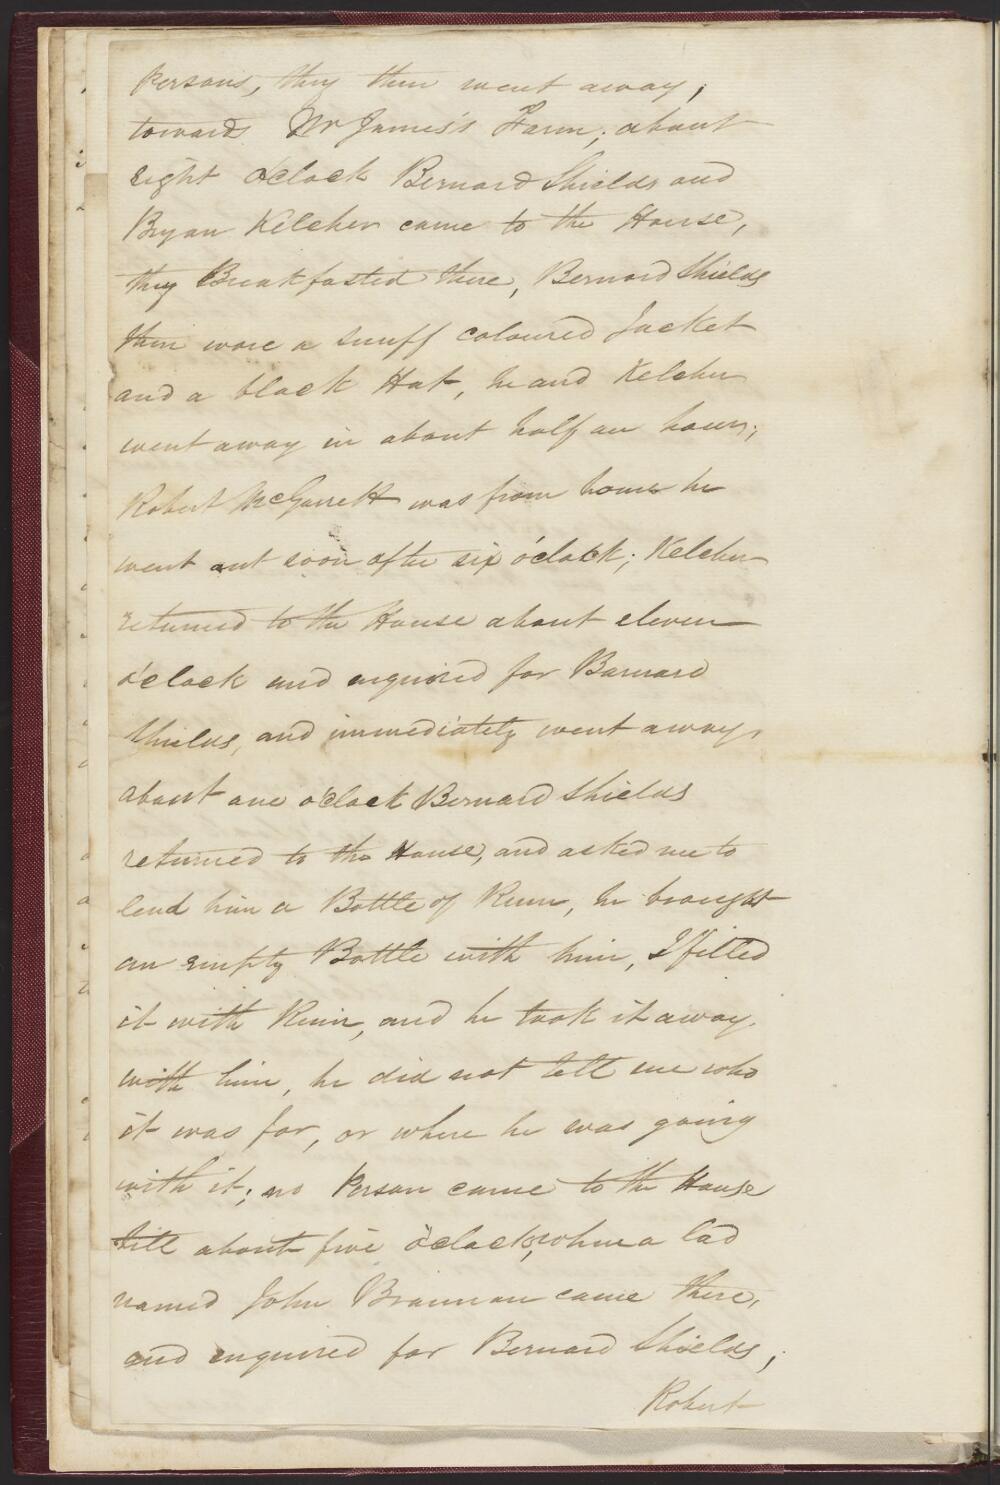 Persons, they then went away,
towards Mr James's Farm; about
eight o'clock Bernard Shields and
Bryan Kelcher came to the House,
they Breakfasted there, Bernard Shields
then wore a snuff coloured Jacket
and a black Hat, he and Kelcher
went away in about half an hour;
Robert McGarrett was from home he
went out soon after six o'clock; Kelcher
returned to the House about eleven
o'clock and enquired for Barnard
Shields, and immediately went away,
about one o'clock Bernard Shields
returned to the House, and asked me to
lend him a Bottle of Rum, he brought
an empty Bottle with him, I filled
it with Rum, and he took it away
with him, he did not tell me who
it was for, or where he was going
with it; no Person came to the House
till about five o'clock, when a lad
named John Brannan came there,
and enquired for Bernard Shields;
Robert